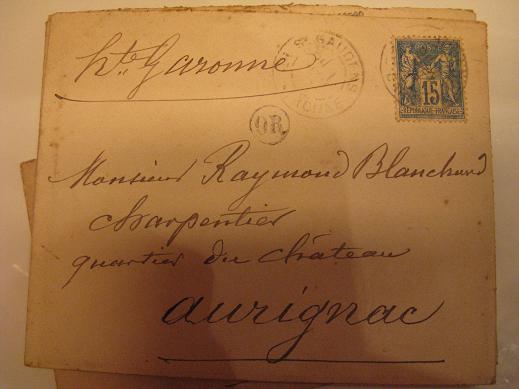 hte Garonne
St GAUDENS
OR
15
REPUBLIQUE FRANCAISE
Monsieur Raymond Blanchard
charpentier
quartier du château
aurignac